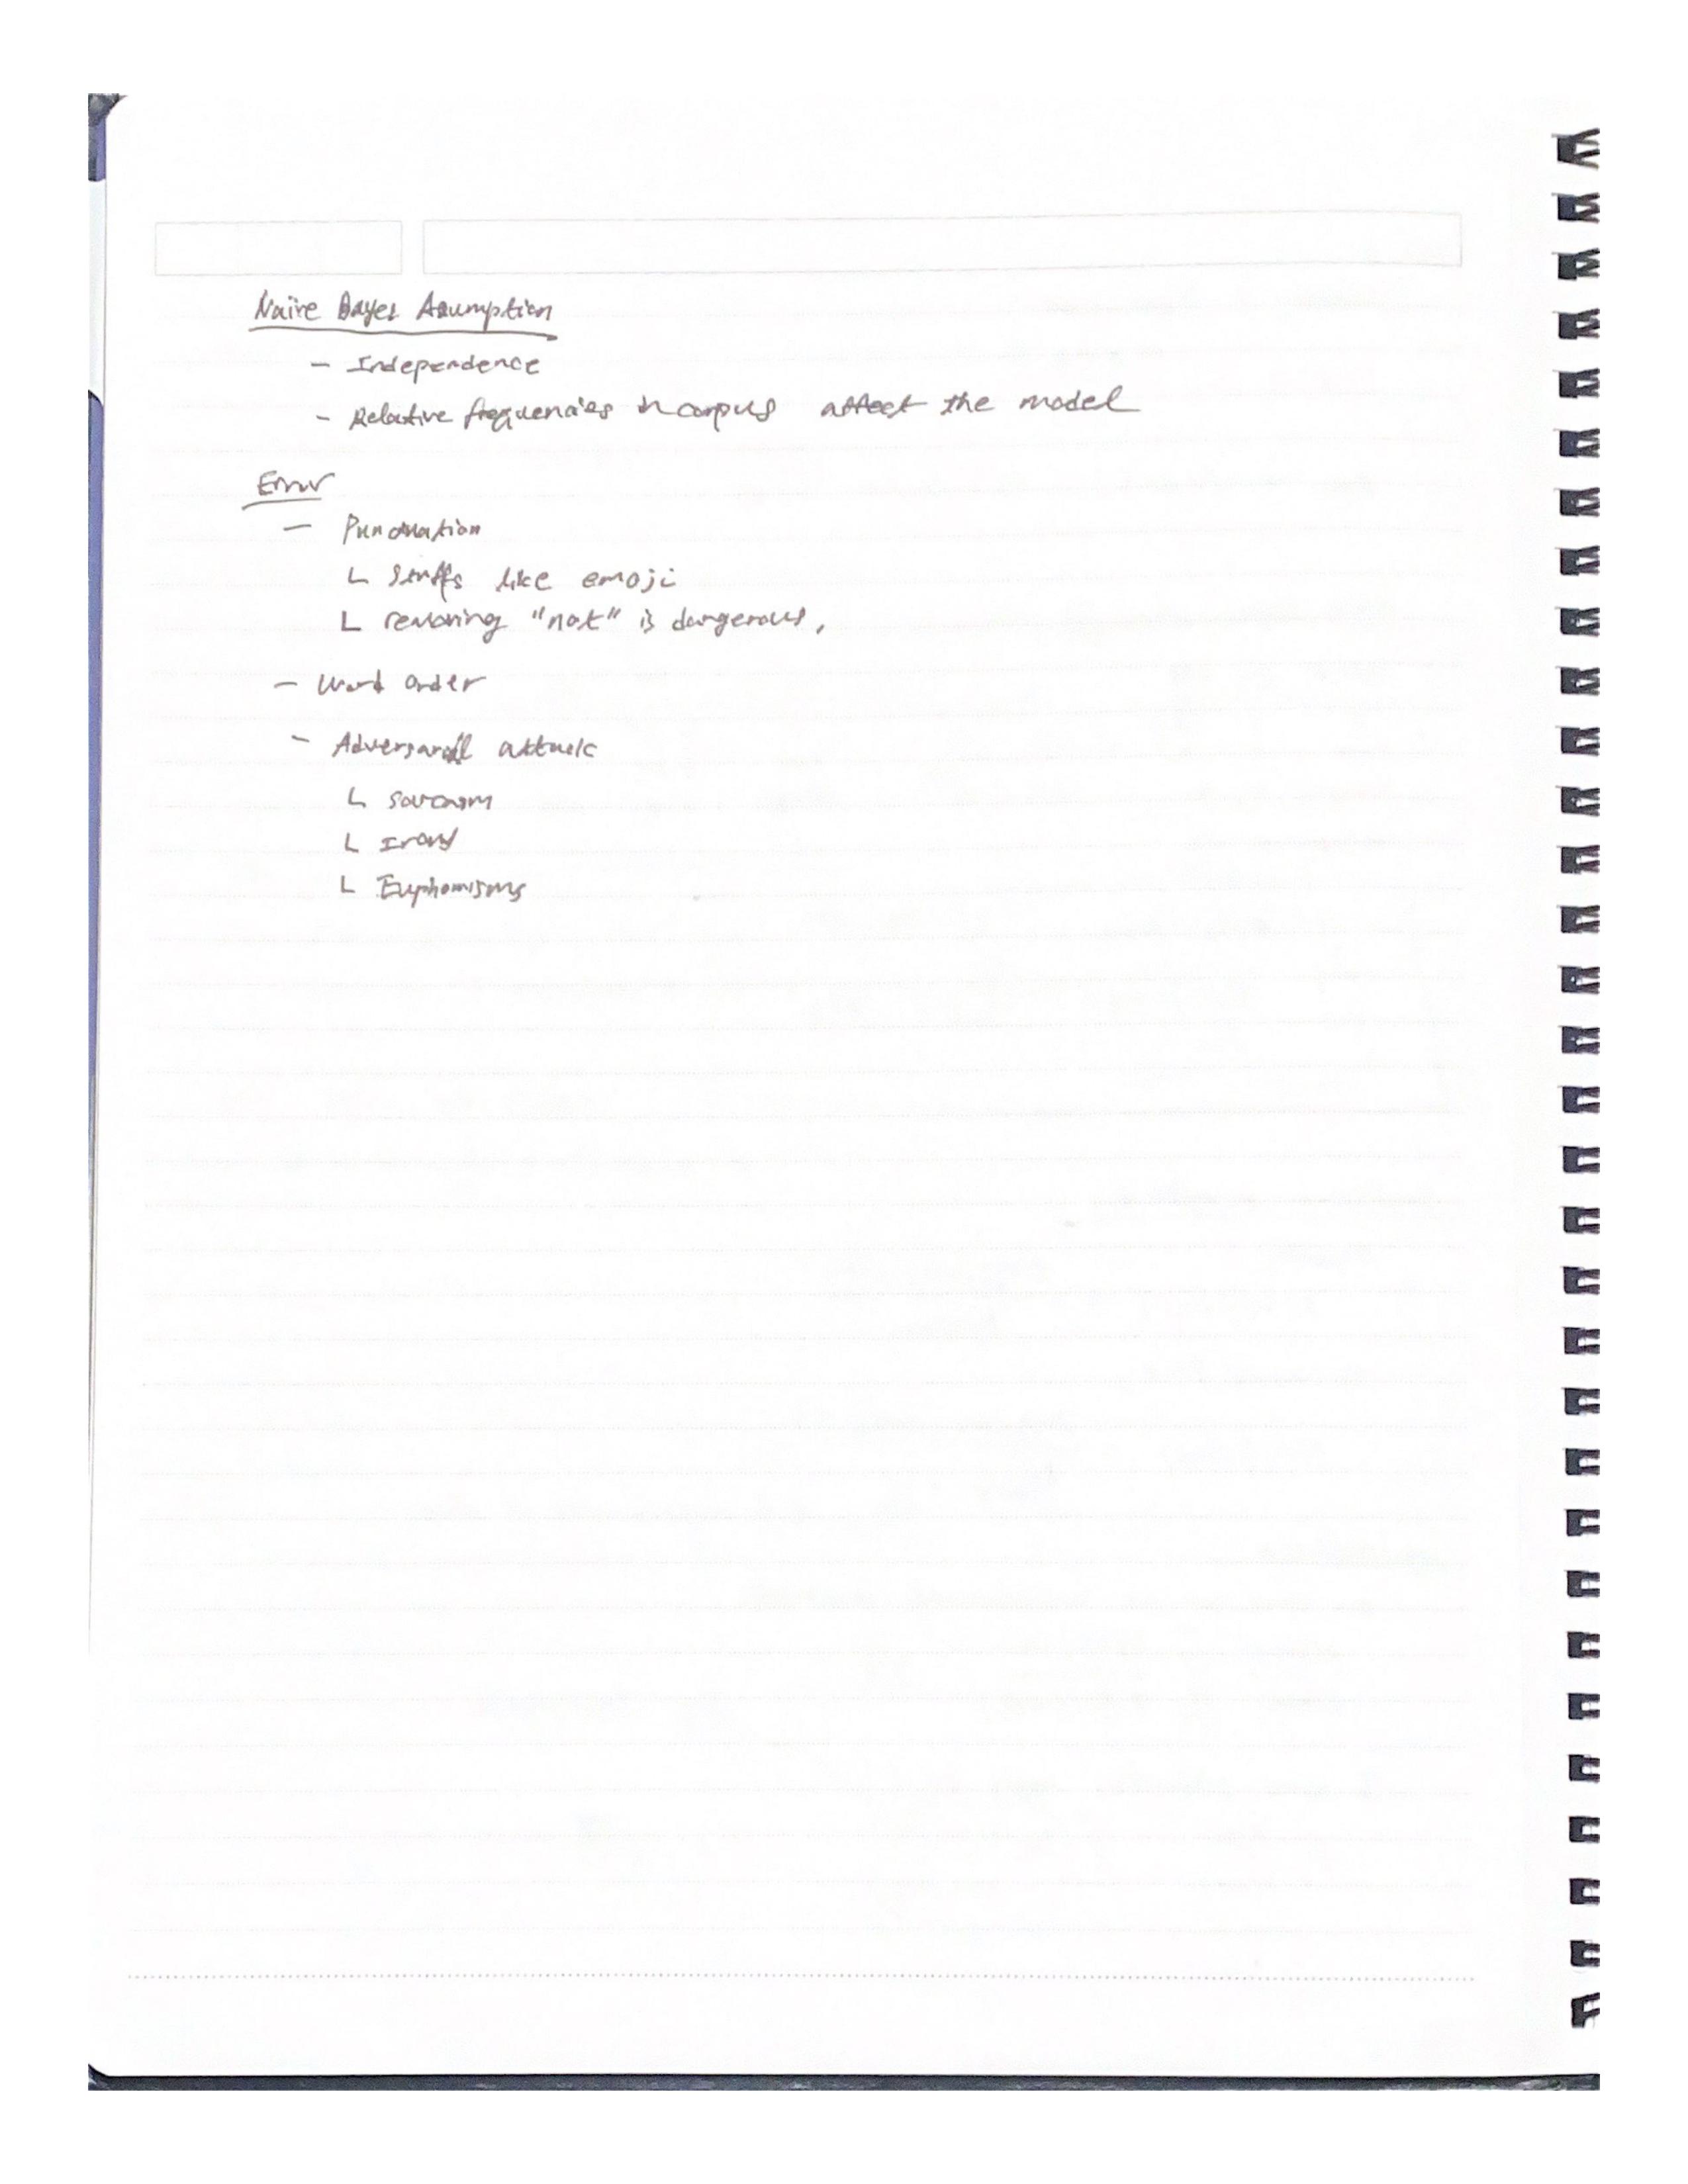 Naive Bayes Assumption
- Independence
- Relative frequencies in corpus affect the model
Error
- Punctuation
L Stuffs like emoji
L removing "not" is dangerous.
- Word order
- Adversarial attack
L Sarcasm
L Irony
L Euphemisms